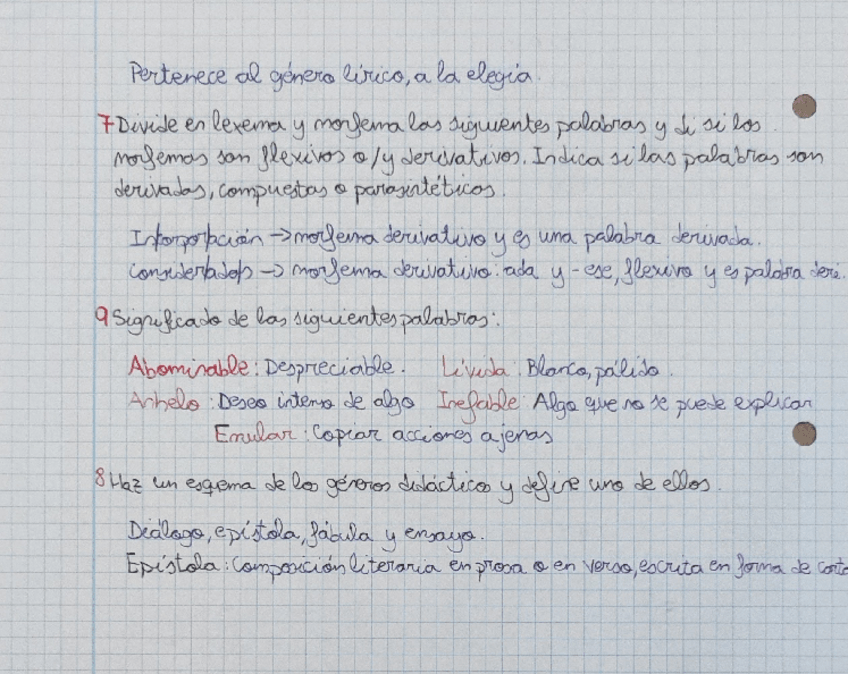 Pertenece al género lírico, a la elegía.
7 Divide en lexema y morfema las siguientes palabras y di si los
morfemas son flexivos o/y derivativos. Indica si las palabras son
derivadas, compuestas o parasintéticos.
→ morfema derivativo y es una palabra derivada.
→ morfema derivativo: ada y -ese, flexivo y es palabra deri.
9 Significado de las siguientes palabras:
Abominable: Despreciable. Lívida: Blanco, pálido.
Anhelo: Deseo intenso de algo Inefable: Algo que no se puede explicar
Emular: Copiar acciones ajenas
8 Haz un esqema de los géneros didáctico y define uno de ellos.
Diálogo, epístola, fábula y ensayo.
Epístola: Composición literaria en prosa o en verso, escrita en forma de carta